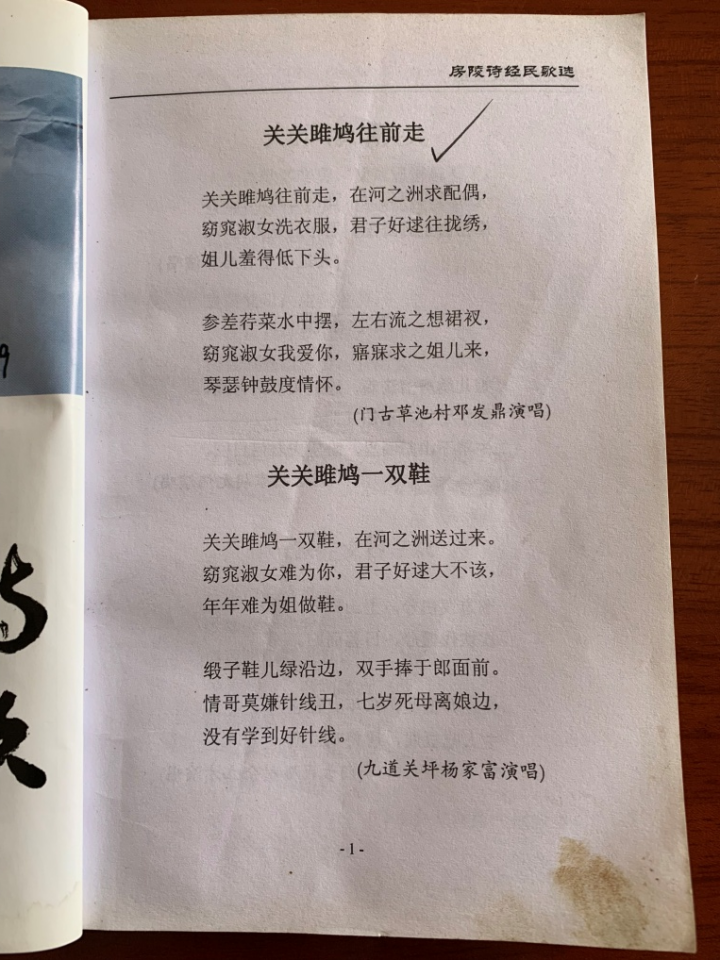 房陵诗经民歌选
关关雎鸠往前走
关关雎鸠往前走，在河之洲求配偶，
窈窕淑女洗衣服，君子好逑往拢绣，
姐儿羞得低下头。
参差荇菜水中摆，左右流之想裙衩，
窈窕淑女我爱你，寤寐求之姐儿来，
琴瑟钟鼓度情怀。
(门古草池村邓发鼎演唱)
关关雎鸠一双鞋
关关雎鸠一双鞋，在河之洲送过来。
窈窕淑女难为你，君子好逑大不该，
年年难为姐做鞋。
缎子鞋儿绿沿边，双手捧于郎面前。
情哥莫嫌针线丑，七岁死母离娘边，
没有学到好针线。
(九道关坪杨家富演唱)
- 1 -